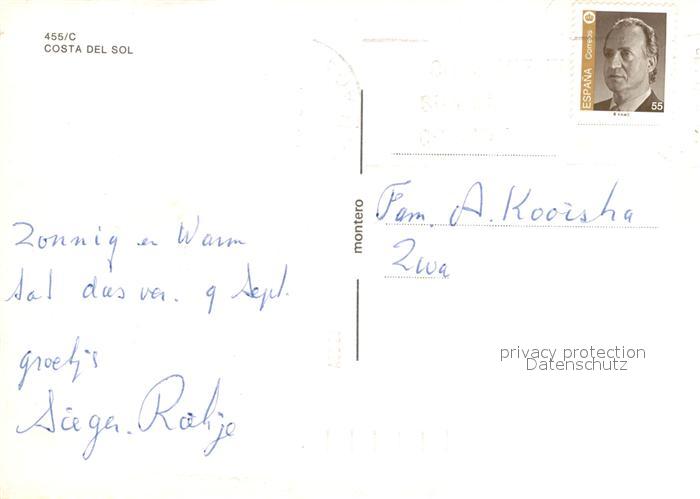 455/C
COSTA DEL SOL
ESPAÑA
Correos
55
montero
Zonnig en Warm
tot dus ver. 9 Sept.
groetjs
Fam. A. Kooisha
Zwa
privacy protection
Datenschutz